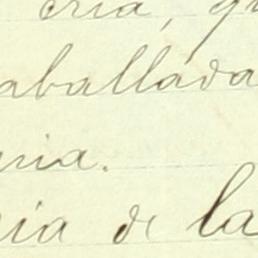 cria, qu
aballada
ria.
ria de la